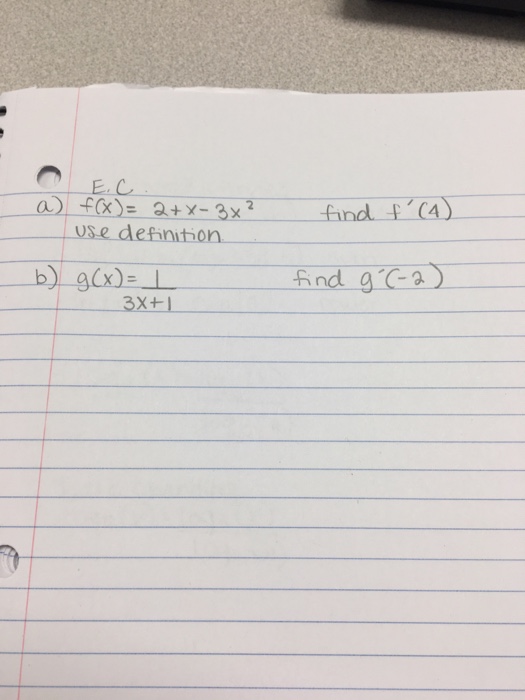 E.C.
a) f(x) = 2+x-3x² find f'(4)
use definition
b) g(x) = 1 find g'(-2)
3x+1